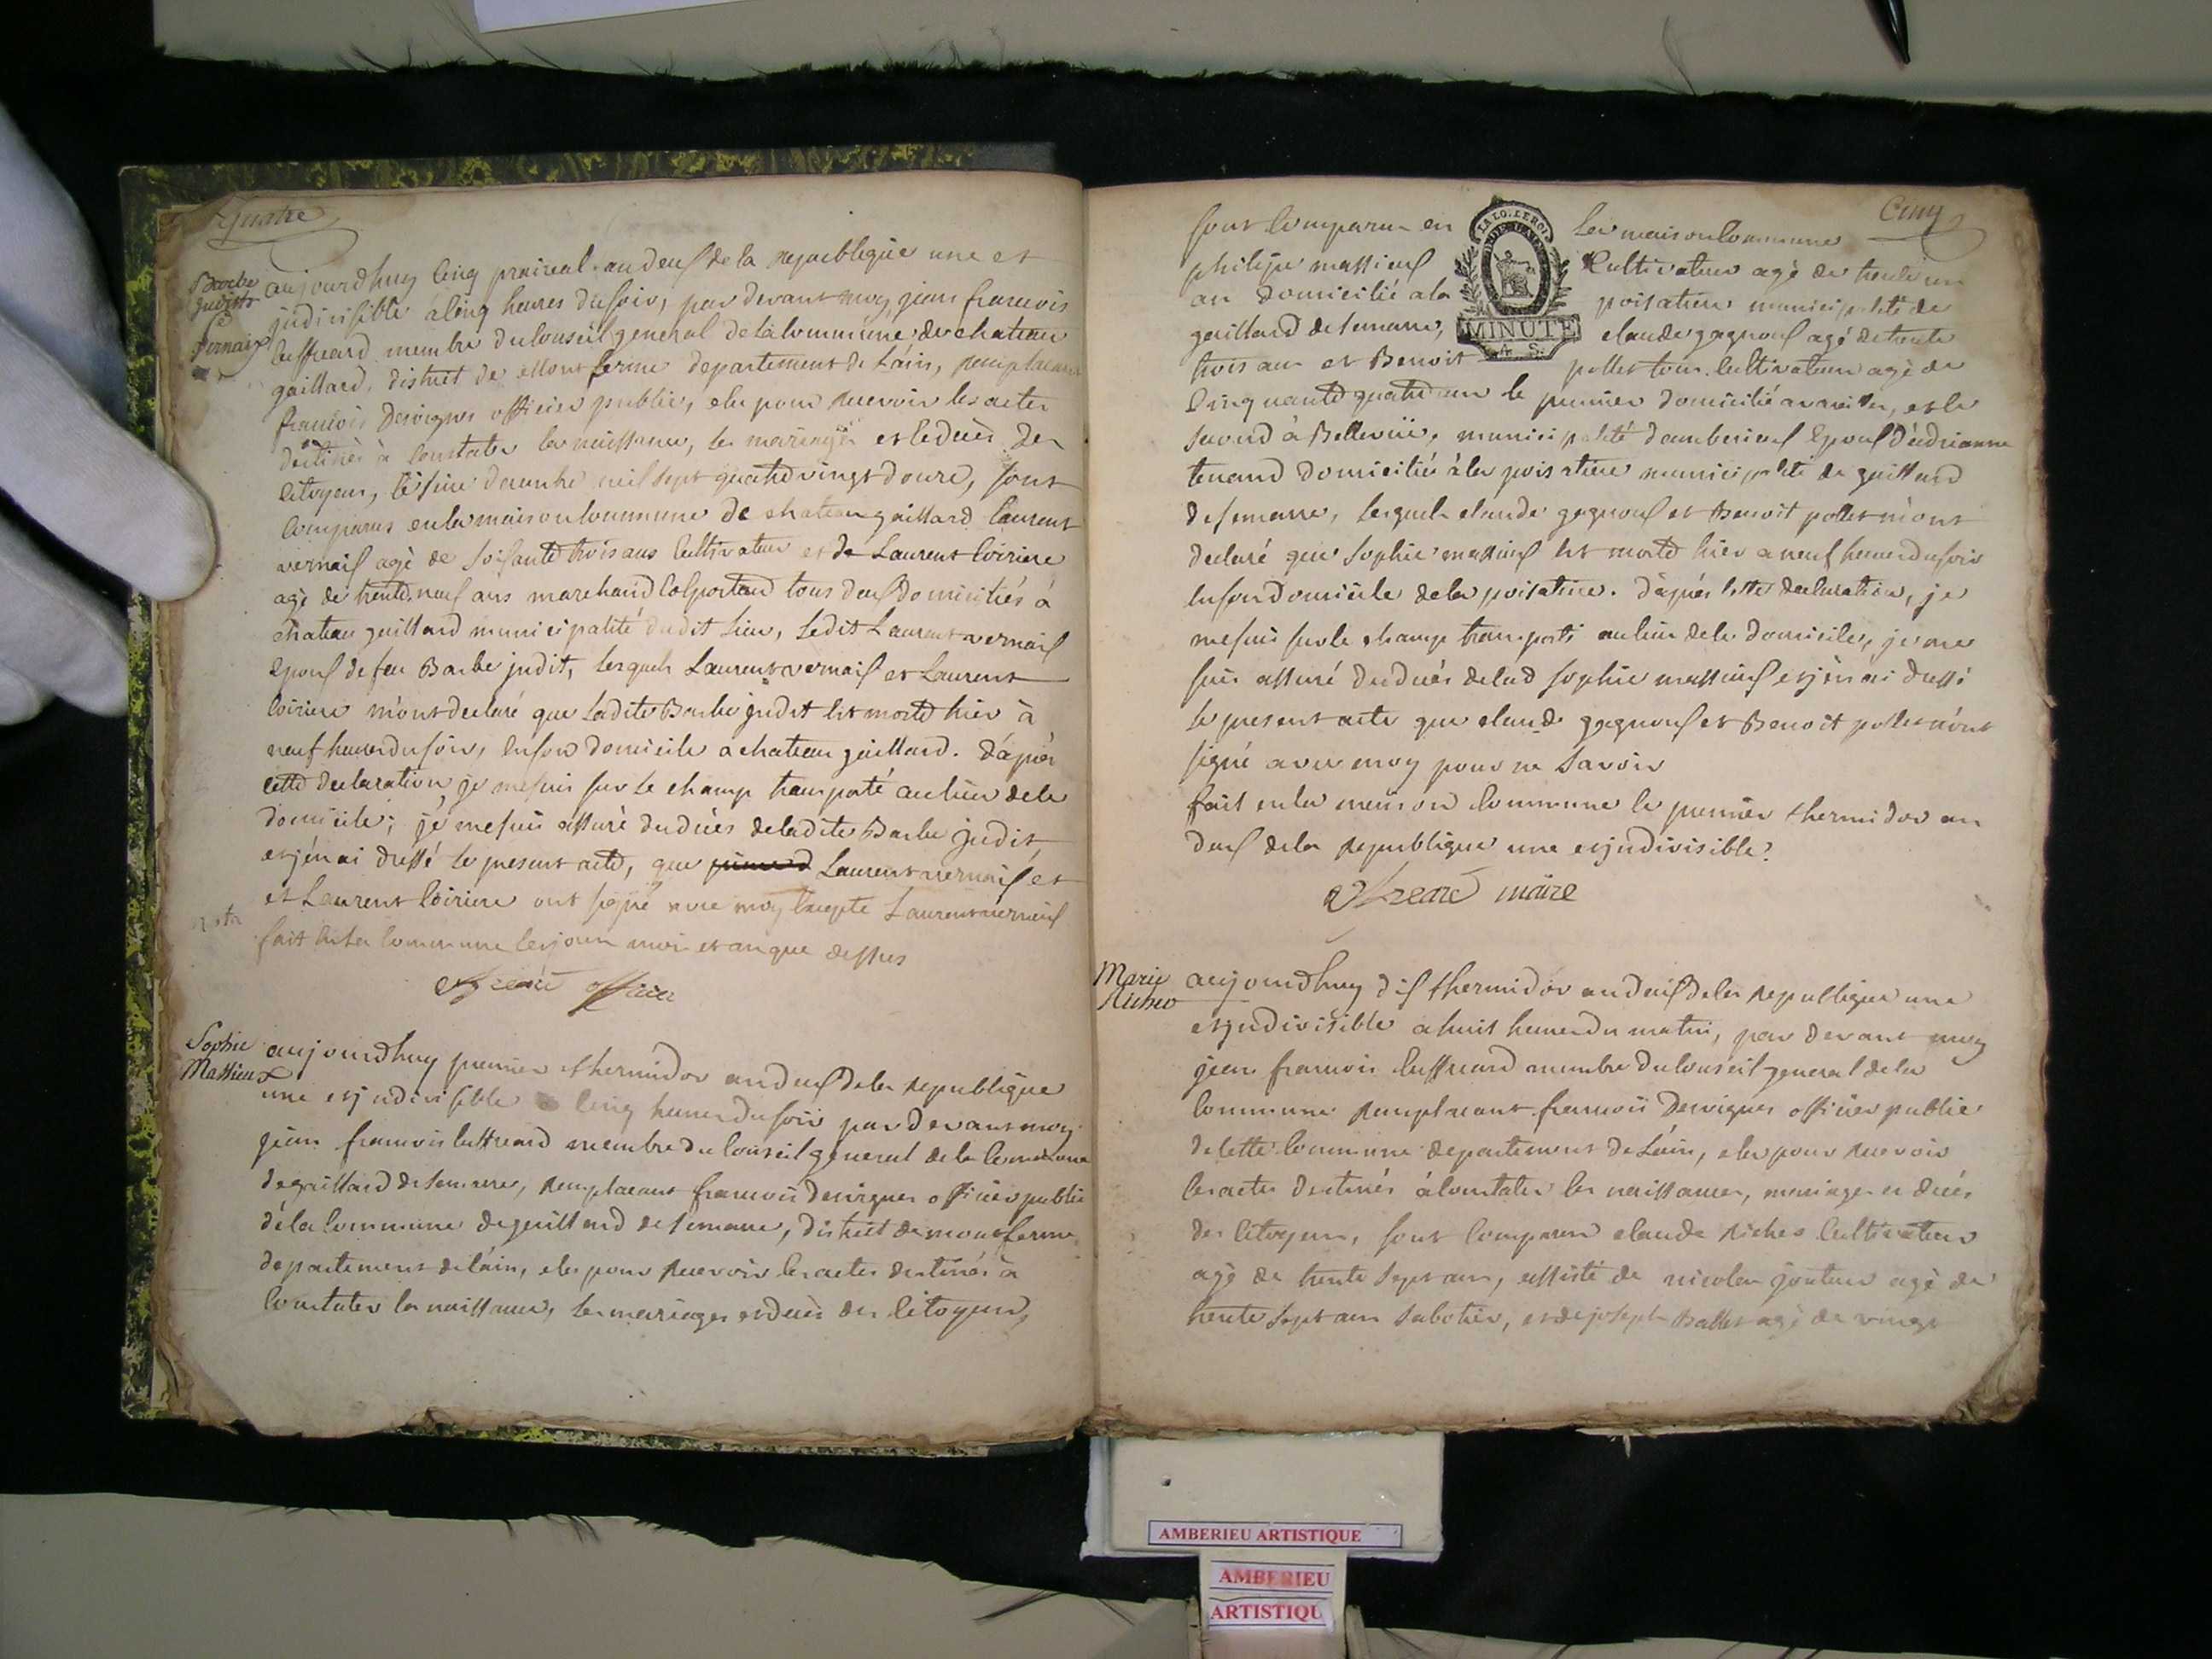 quatre
Barbe
judit
fe
vernaix
aujourdhuy cinq praireal an deux de la republique une et
jndivisible à cinq heures du soir, par devant moy, jean francois
membre du conseil general de la commune de chateau
gaillard, district de mont ferme departement de l'ain, remplacant
francois desvignes officier public, elu pour recevoir les actes
destinés à constater les naissances, les mariages et le deces des
citoyens, mil sept quatre vingt douze, sont
comparus en la maison commune de chateau gaillard laurent
vernaix agé de soixante trois ans cultivateur et de Laurent Coiriere
agé de trente neuf ans marchand colportant tous deux domiciliés à
chateau gaillard municipalité dudit lieu, ledit Laurent vernaix
epoux de feu Barbe judit, lesquels Laurent vernaix et Laurent
Coiriere m'ont declaré que ladite Barbe judit est morte hier à
neuf heures du soir, en son domicile a chateau gaillard. d'aprés
cette declaration je me suis sur le champ transporté au lieu de le
domicile; je me suis assuré du décès de ladite Barbe judit,
et j'en ai dressé le present acte, que Laurent vernaix et
et Laurent Coiriere ont signé avec moy excepte Laurent vernaix
fait en la commune les jour mois et an que dessus
officier
Sophie
Massieux
aujourdhuy premier thermidor an deux de la republique
une et jndivisible cinq heures du soir par devant moy
jean francois membre du conseil general de la commune
de gaillard de semarre, remplacant francois desvignes officier public
de la commune de gaillard de semarre, district de mont ferme
departement de l'ain, elu pour recevoir les actes destinés à
constater les naissances, les mariages et deces des citoyens,
Cinq
LA LOI. LE ROI.
MINUTE
4 S.
sont comparus en la maison commune
philipe massieux Cultivateur agé de trente un
an domicilié a la poisatiere municipalité de
gaillard de semarre, claude gagnoux agé de trente
trois ans et Benoit pollet cultivateur agé de
cinquante quatre ans le premier domicilié, et le
second à Bellevüe, municipalité d'amberieux epoux
tenand domicilié à la poisatiere municipalité de gaillard
de semarre, lesquels claude gagnoux et Benoit pollet m'ont
declaré que sophie massieux est morte hier a neuf heures du soir
en son domicile de la poisatiere. d'aprés cette declaration, je
me suis sur le champ transporté au lieu de le domicile, je me
suis assuré du décés de lad sophie massieux et j'en ai dressé
le present acte que claude gagnoux et Benoit pollet n'ont
signé avec moy pour ne savoir
fait en la maison commune le premier thermidor an
deux de la republique une et jndivisible.
maire
Marie
Richer
aujourdhuy dix thermidor an deux de la republique une
et jndivisible a huit heures du matin, par devant moy
jean francois membre du conseil general de la
commune remplacant francois desvignes officier public
de cette commune departement de l'ain, elu pour recevoir
les actes destinés à constater les naissances, mariages et décés
des citoyens, sont comparus claude Riches cultivateur
agé de trente sept ans, assisté de nicolas agé de
trente sept ans sabotier, et de joseph Ballet agé de vingt
AMBERIEU ARTISTIQUE
AMBERIEU
ARTISTIQU